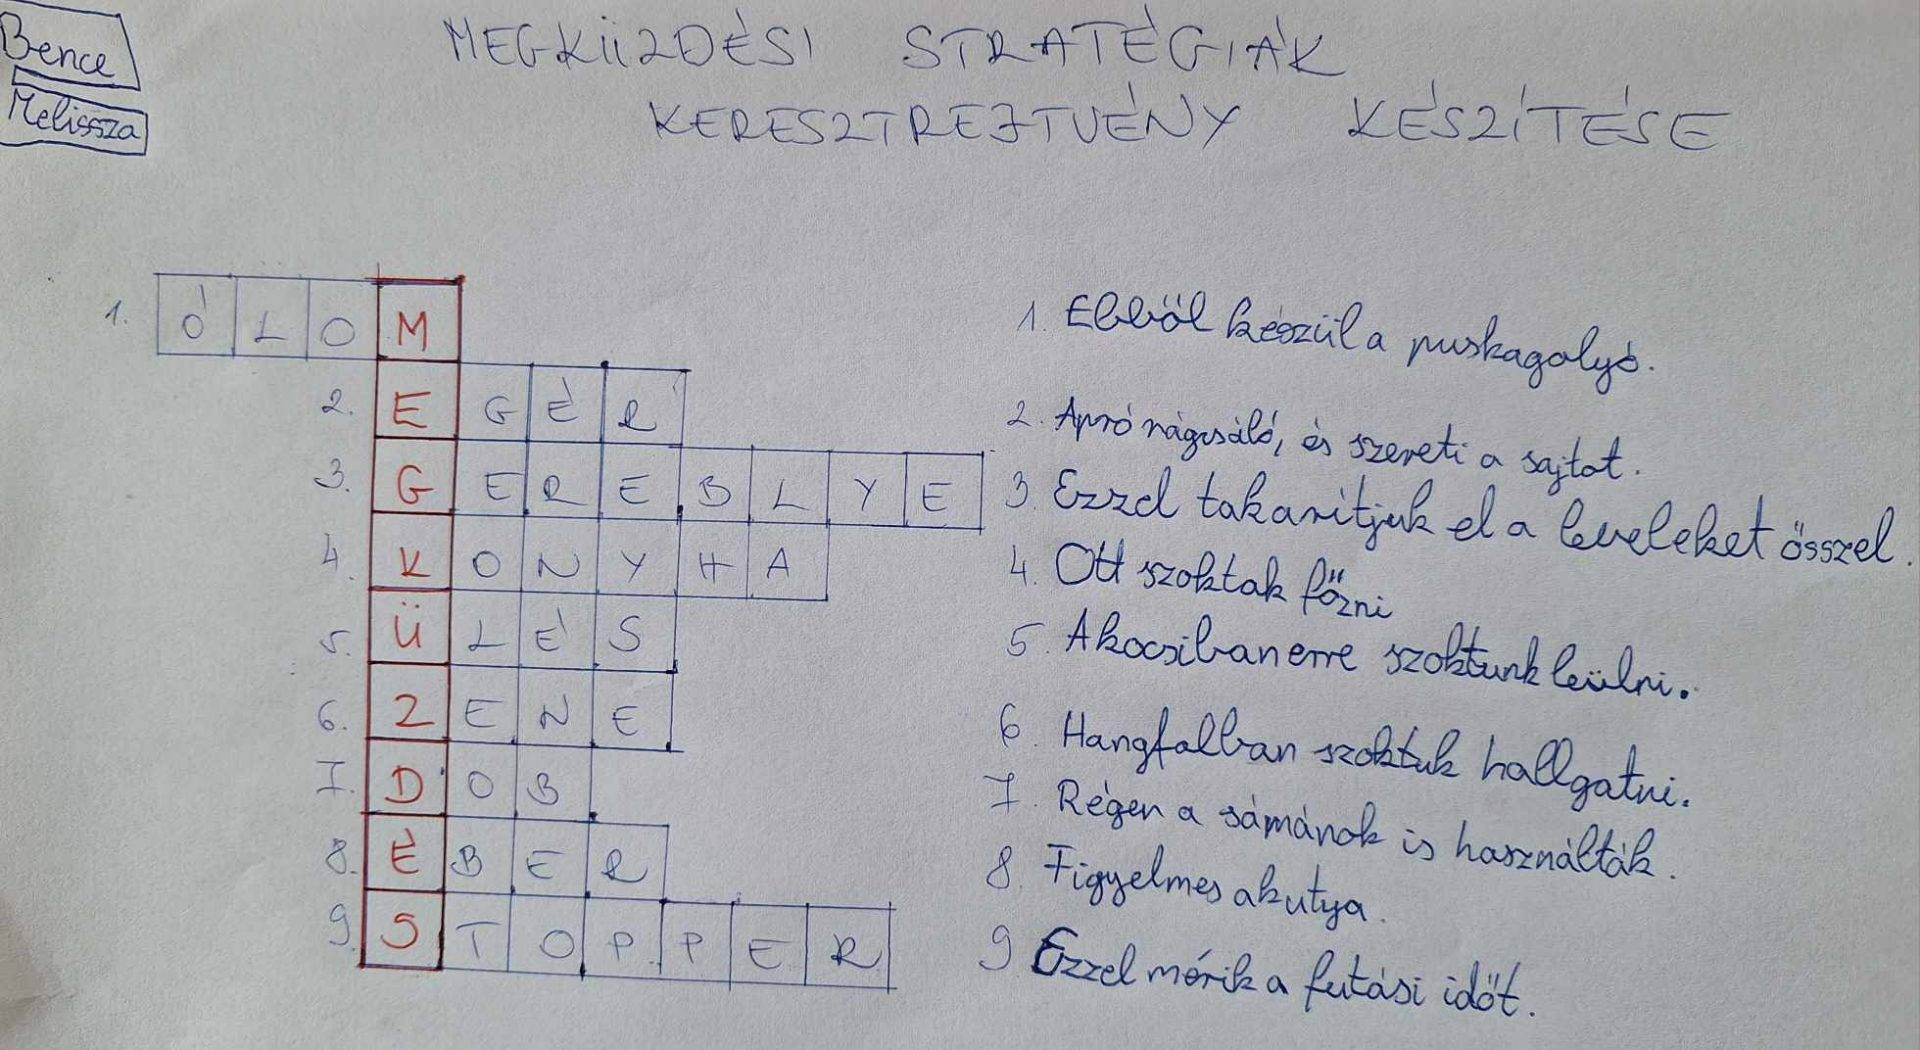 Bence
Melissza
MEGKÜZDÉSI STRATÉGIÁK
KERESZTREJTVÉNY KÉSZÍTÉSE
1. ÓLOM
2. EGÉR
3. GEREBLYE
4. KONYHA
5. ÜLÉS
6. ZENE
7. DOB
8. ÉBER
9. STOPPER
1. Ebből készül a puskagolyó.
2. Apró rágcsáló, és szereti a sajtot.
3. Ezzel takarítjuk el a leveleket ősszel.
4. Ott szoktak főzni
5. A kocsiban erre szoktunk leülni.
6. Hangfalban szoktuk hallgatni.
7. Régen a sámánok is használták.
8. Figyelmes a kutya.
9 Ezzel mérik a futási időt.